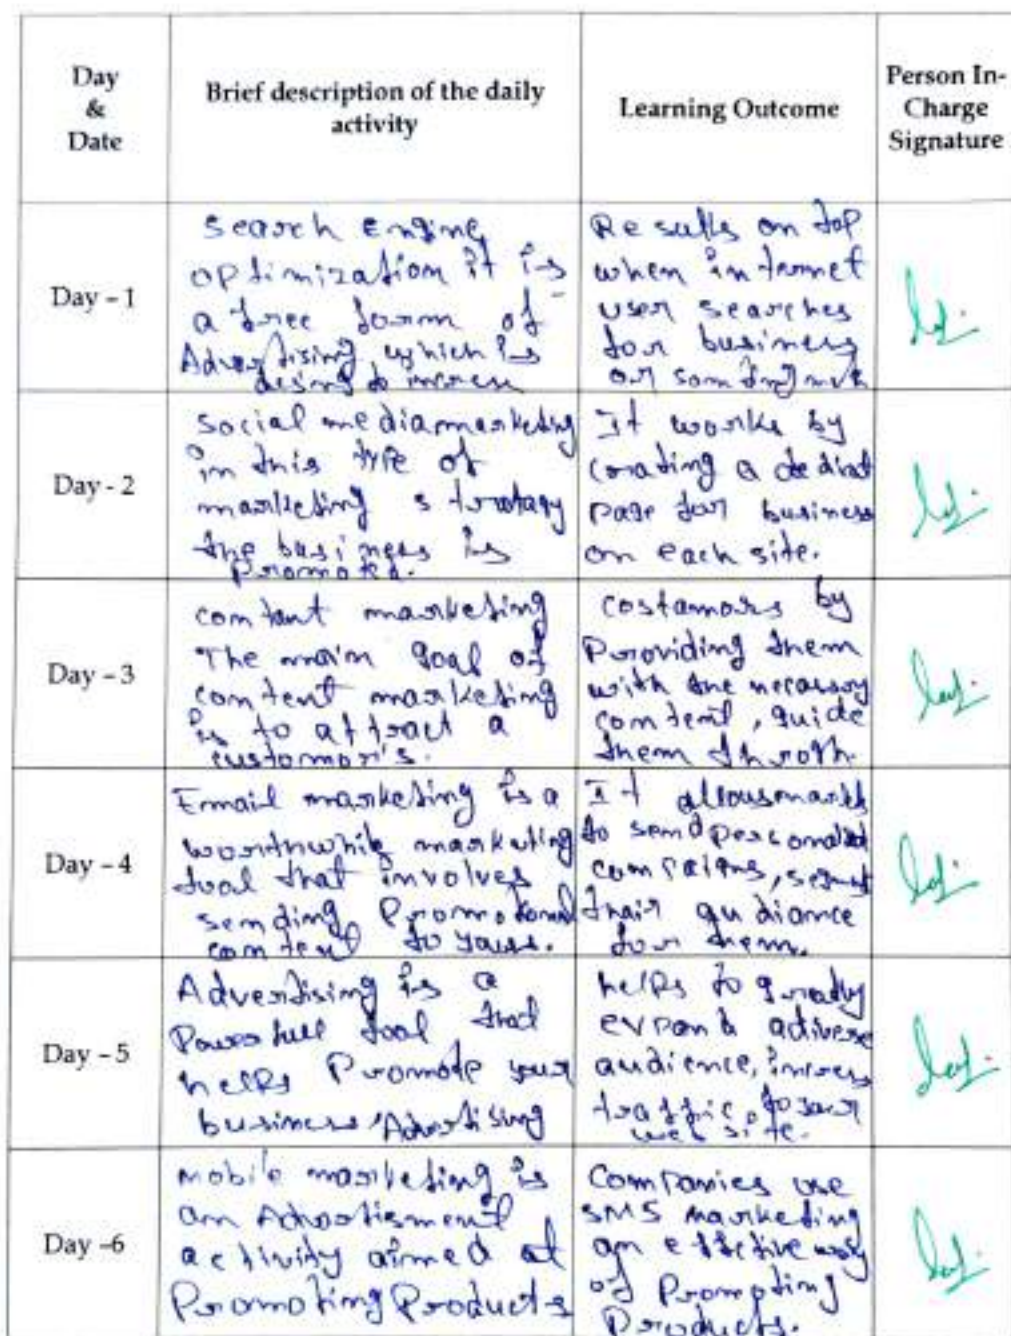 Day
&
Date
Brief description of the daily
activity
Learning Outcome
Person In-
Charge
Signature
Day - 1
Search Engine
optimization it is
a free form of
Advertising, which is
desing to
Results on top
when internet
user searches
for business
or
Day - 2
Social media marketing
in this type of
marketing
the business is
Promoted.
It works by
crating a
page for business
on each site.
Day - 3
contant marketing
The main Goal of
content marketing
is to attract a
customor's.
costamors by
Providing them
with the
content, guide
them
Day - 4
Email marketing is a
marketing
tool that involves
sending Promotional
content to
It
to send
their
for them.
Day - 5
Advertising is a
tool that
helps Promote your
business Advertising
helps to
audience,
web site.
Day -6
mobile marketing is
an
activity aimed at
Promoting Products
Companies use
SMS marketing
an effective way
of Promoting
Products.